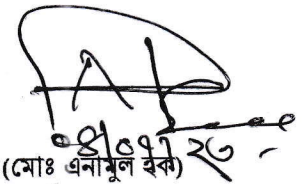 ০৪/০৭/২৩
(মোঃ এনামুল হক)